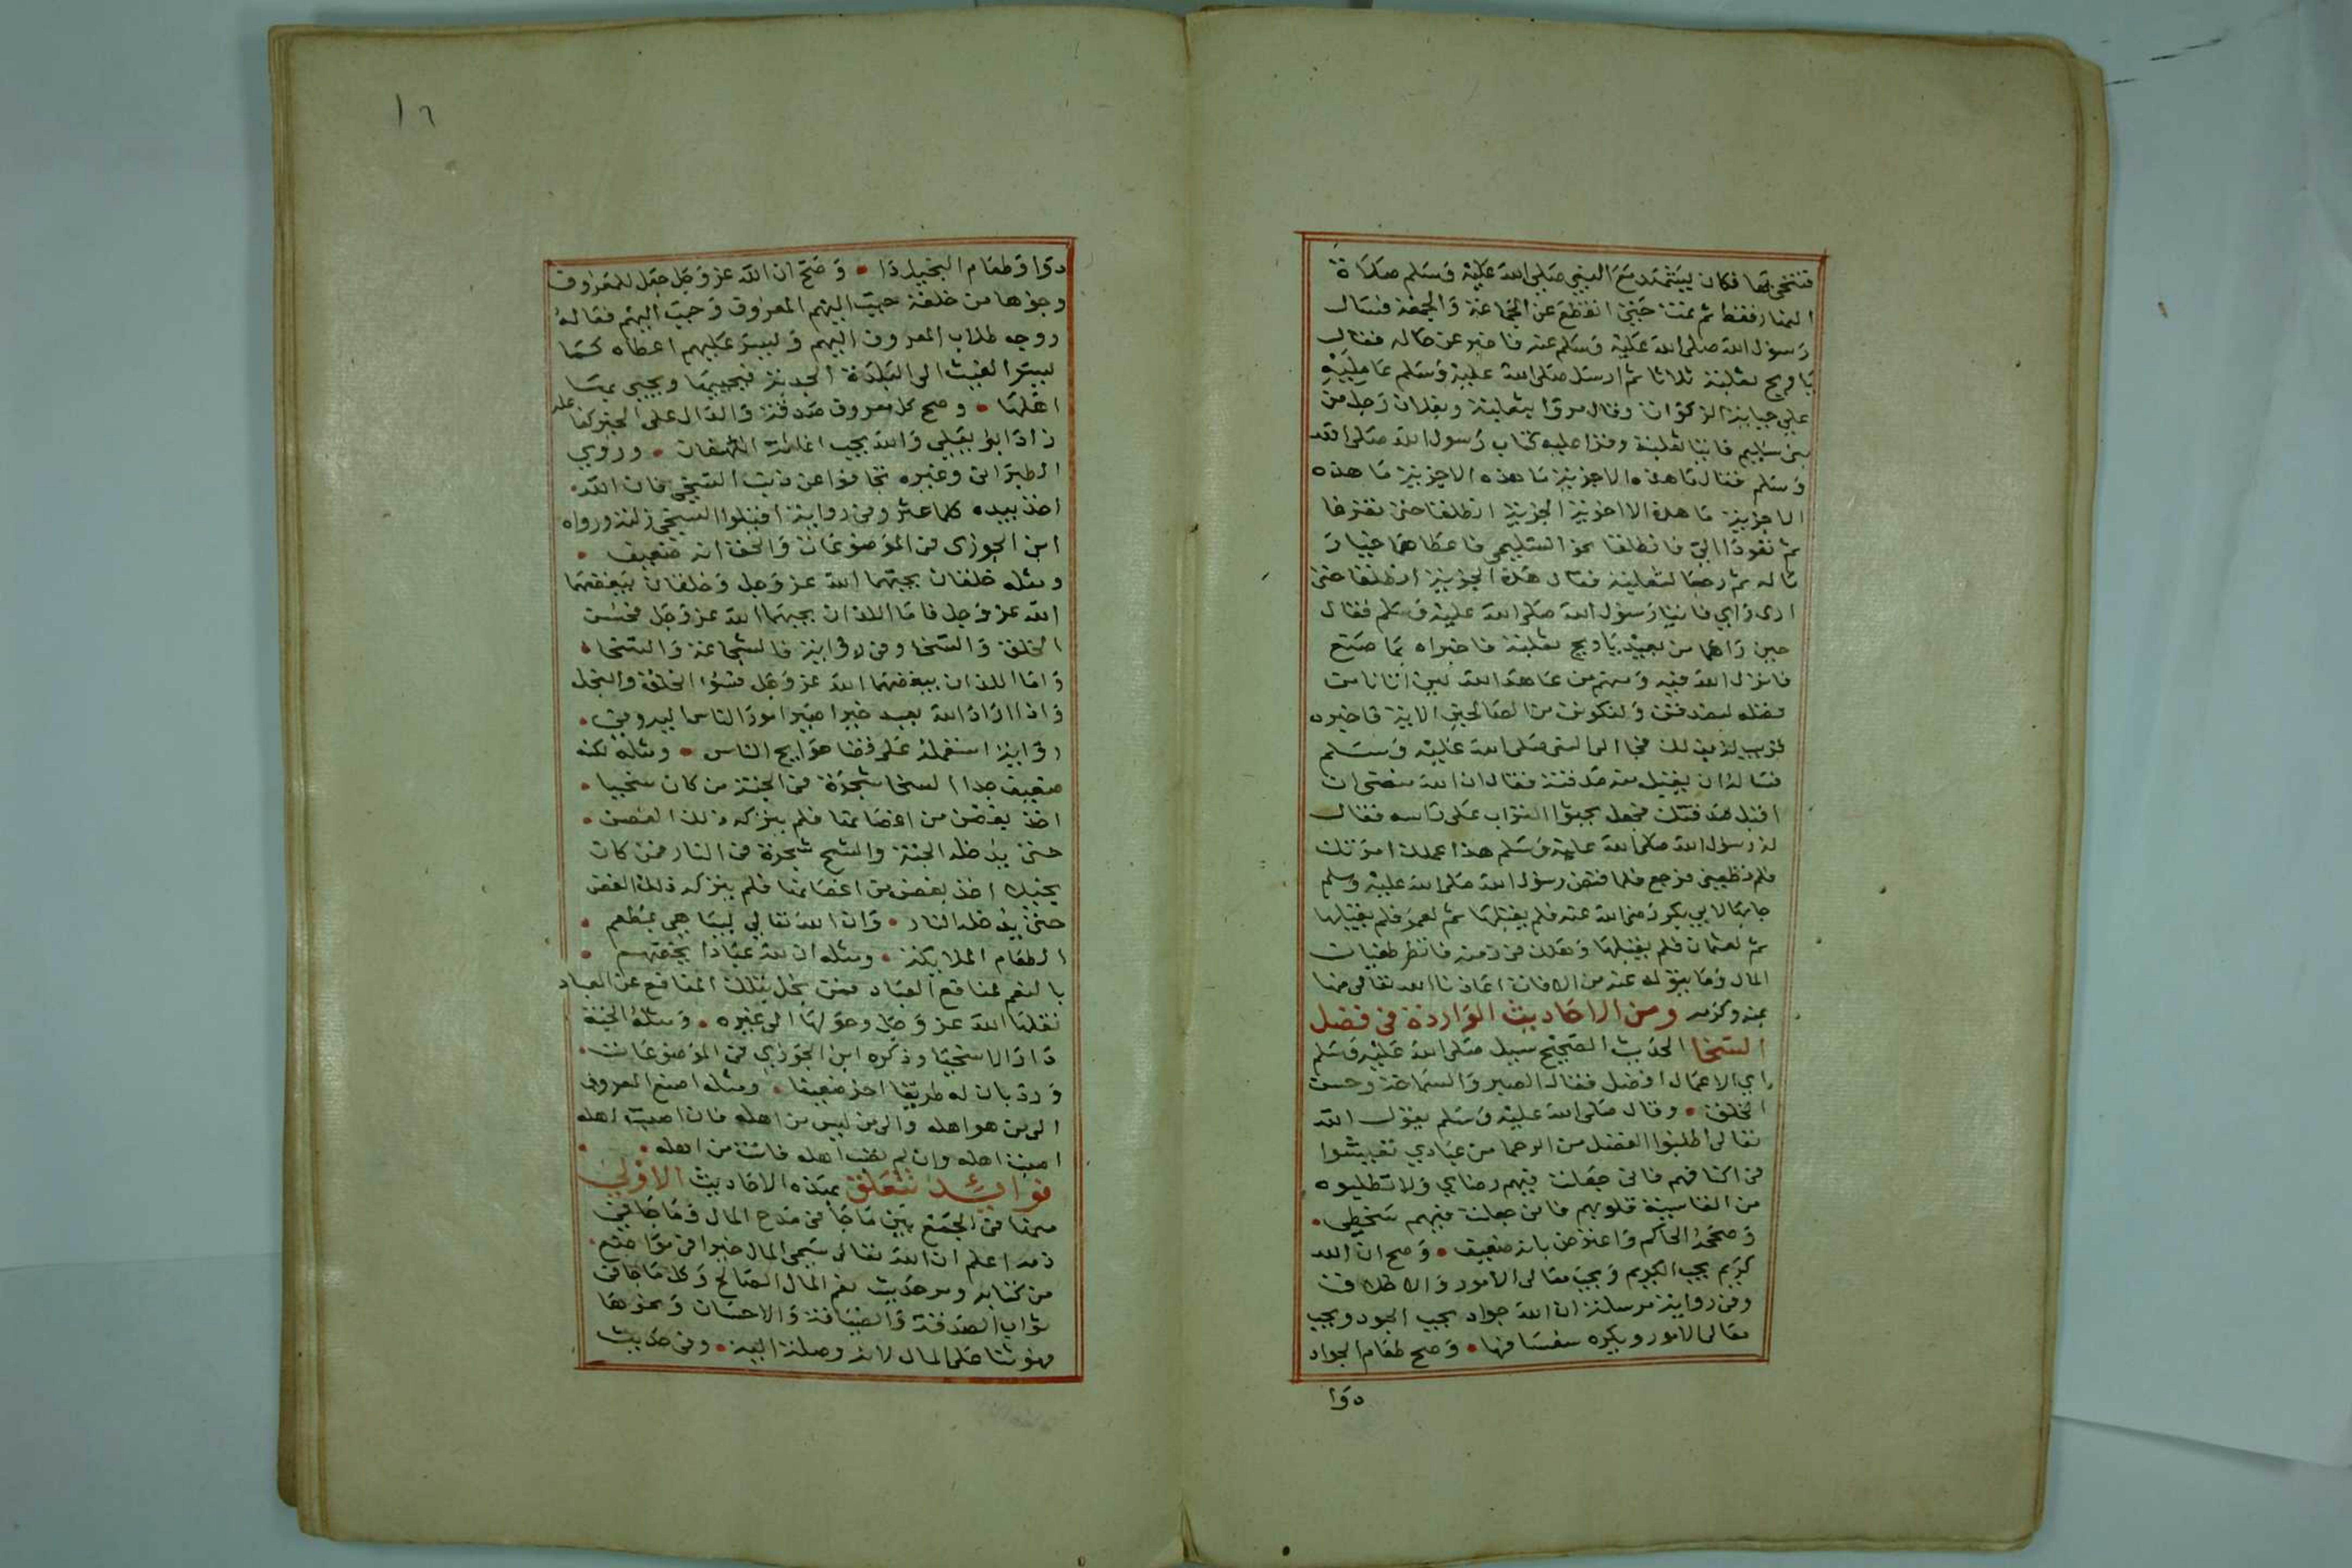 فتنحى بها فكان يشهد مع النبي صلى الله عليه وسلم صلاة
النهار فقط ثم نمت حتى انقطع عن الجماعة والجمعة فسال
رسول الله صلى الله عليه وسلم عنه فاخبر عن حاله فقال
يا ويح ثعلبة ثلاثا ثم ارسل صلى الله عليه وسلم عامليه
على جباية الزكوات وقال مروا بثعلبة وبفلان رجل من
بني سليم فاتيا ثعلبة وقرا عليه كتاب رسول الله صلى الله
وسلم فقال ما هذه الا جزية ما هذه الا جزية ما هذه
الا جزية ما هذه الا اخية الجزية انطلقا حتى تفرغا
ثم تعودا الي فانطلقا نحو السليمي فاعطاهما خيار
ماله ثم رجعا لثعلبة فقال هذه الجزية انطلقا حتى
ارى رايي فاتيا رسول الله صلى الله عليه وسلم فقال
حين راهما من بعيد يا ويح ثعلبة فاخبراه بما صنع
فانزل الله فيه ومنهم من عاهد الله لئن اتانا من
فضله لنصدقن ولنكونن من الصالحين الاية فاخبره
قريب له بذلك فجا الى النبي صلى الله عليه وسلم
فساله ان يقبل منه صدقته فقال ان الله منعني ان
اقبل صدقتك فجعل يحثوا التراب على راسه فقال
له رسول الله صلى الله عليه وسلم هذا عملك امرتك
فلم تطعني فرجع فلما قبض رسول الله صلى الله عليه وسلم
جا بها لابي بكر رضي الله عنه فلم يقبلها ثم لعمر فلم يقبلها
ثم لعثمان فلم يقبلها وهلك في زمنه فانظر طغيان
المال وما يتولد عنه من الافات اعاذنا الله تعالى منها
بمنه وكرمه ومن الاحاديث الواردة في فضل
السخا الحديث الصحيح سيل صلى الله عليه وسلم
اي الاعمال افضل فقال الصبر والسماحة وحسن
الخلق • وقال صلى الله عليه وسلم يقول الله
تعالى اطلبوا الفضل من الرحما من عبادي تعيشوا
في اكنافهم فاني جعلت فيهم رضاي ولا تطلبوه
من القاسية قلوبهم فاني جعلت فيهم سخطي •
وصححه الحاكم واعترض بانه ضعيف • وصح ان الله
كريم يحب الكريم ويحب معالى الامور والاخلاق
وفي رواية مرسلة ان الله جواد يحب الجود ويحب
معالى الامور ويكره سفسافها • وصح طعام الجواد
دوا
١٦
دوا وطعام البخيل دا • وصح ان الله عز وجل جعل للمعروف
وجوها من خلقه حبب اليهم المعروف وحبب اليهم فعاله
ووجه طلاب المعروف اليهم ويسر عليهم اعطاه كما
يسر الغيث الى البلدة الجدبة فيحييها ويحيي بها
اهلها • وصح كل معروف صدقة والدال على الخير كفاعله
زاد ابو يعلى والله يحب اغاثة اللهفان • وروي
الطبراني وغيره تجافوا عن ذنب السخي فان الله
اخذ بيده كلما عثر وفي رواية اقيلوا السخي زلته ورواه
ابن الجوزي في الموضوعات والحق انه ضعيف •
ومثله خلقان يحبهما الله عز وجل وخلقان يبغضهما
الله عز وجل فاما اللذان يحبهما الله عز وجل فحسن
الخلق والسخا وفي رواية فالشجاعة والسخا •
واما اللذان يبغضهما الله عز وجل فسوا الخلق والبخل
واذا اراد الله بعبد خيرا صير امور الناس اليه وفي •
رواية استعمله على قضا حوايج الناس • ومثله لكنه
ضعيف جدا السخا شجرة في الجنة من كان سخيا •
اخذ بغصن من اغصانها فلم يتركه ذلك الغصن •
حتى يدخله الجنة والشح شجرة في النار فمن كان
بخيلا اخذ بغصن من اغصانها فلم يتركه ذلك الغصن
حتى يدخله النار • وان الله تعالى يباهي بمطعم •
الطعام الملايكة • ومثله ان لله عبادا يخصهم •
بالنعم لمنافع العباد فمن بخل بتلك المنافع عن العباد
نقلها الله عز وجل وحولها الى غيره • ومثله الجنة
دار الاسخيا وذكره ابن الجوزي في الموضوعات •
ورد بان له طريقا اخر ضعيفا • ومثله اصنع المعروف
الى من هو اهله والى من ليس من اهله فان اصبت اهله
اصبت اهله وان لم تصب اهله فانت من اهله •
فوايد تتعلق بهذه الاحاديث الاولى
منها في الجمع بين ما جا في مدح المال وما جا في
ذمه اعلم ان الله تعالى سمى المال خيرا في مواضع •
من كتابه ومر حديث نعم المال الصالح وكل ما جا في
ثواب الصدقة والضيافة والاحسان ونحوها
فهو ثنا على المال لانه وصلة اليه • وفي حديث